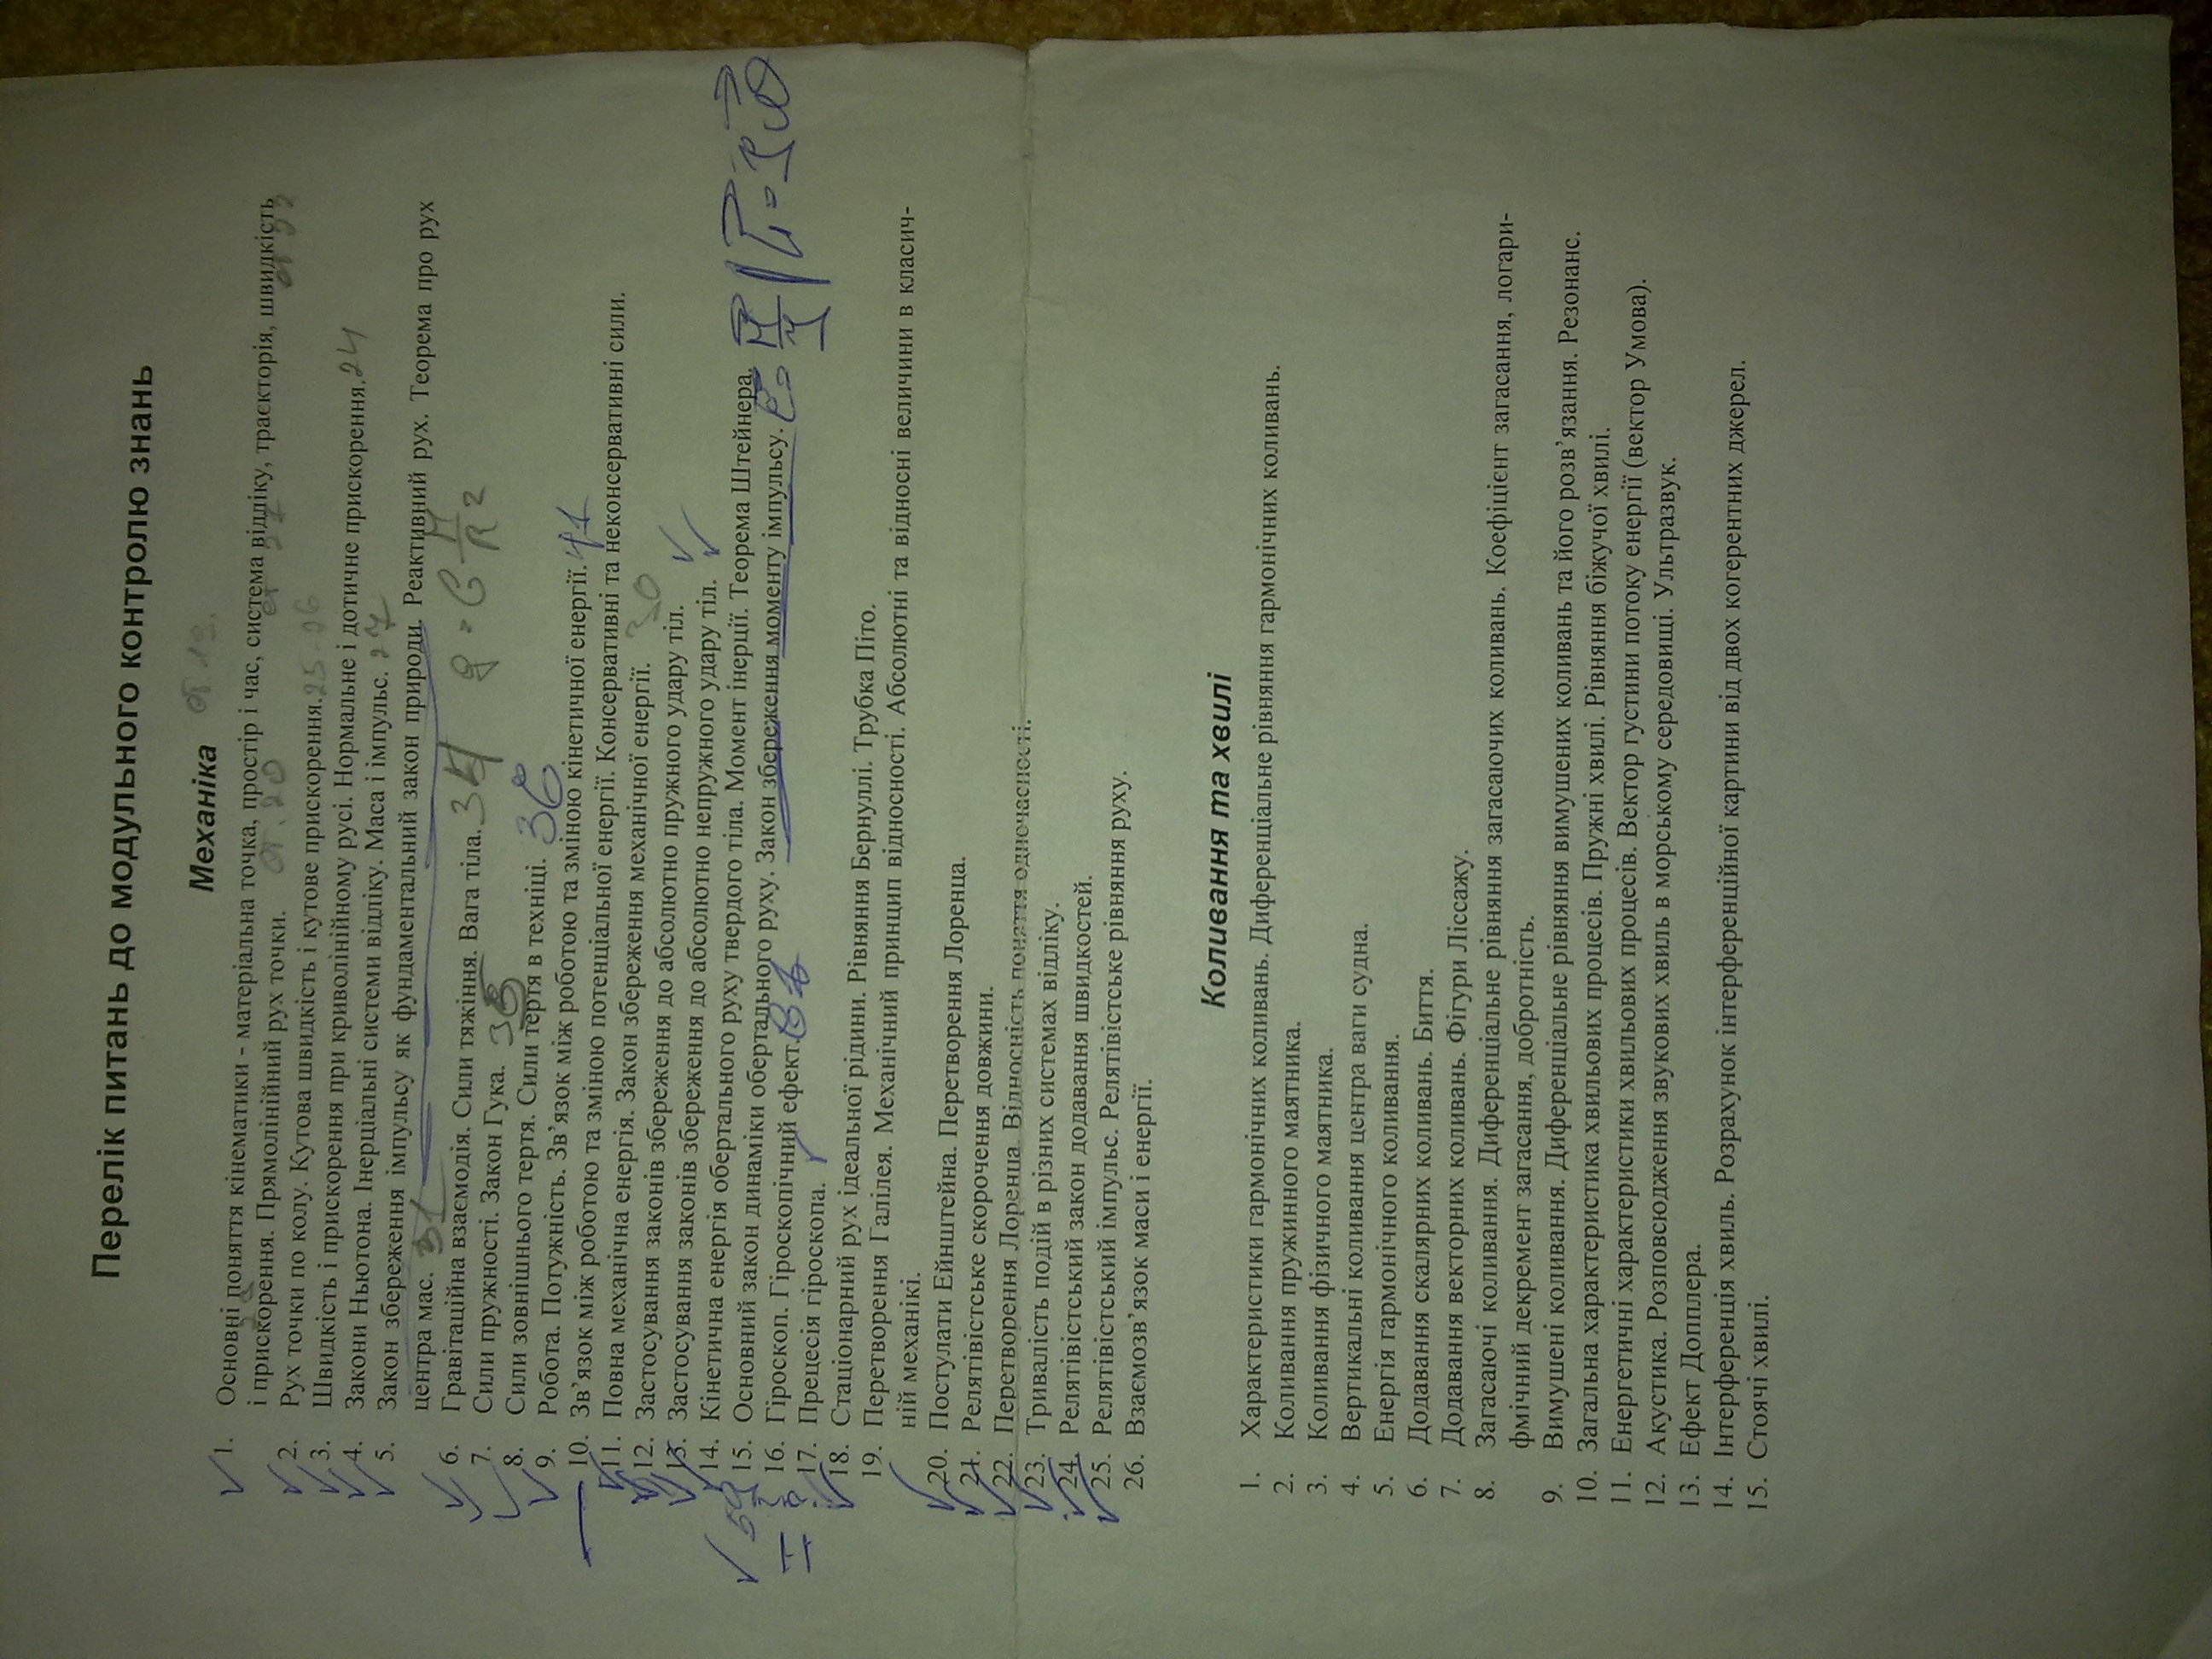 Перелік питань до модульного контролю знань
Механіка ст. 19.
1. Основні поняття кінематики - матеріальна точка, простір і час, система відліку, траєкторія, швидкість
і прискорення. Прямолінійний рух точки. ст. 20
2. Рух точки по колу. Кутова швидкість і кутове прискорення. 25-26
3. Швидкість і прискорення при криволінійному русі. Нормальне і дотичне прискорення. 24
4. Закони Ньютона. Інерціальні системи відліку. Маса і імпульс. 27
5. Закон збереження імпульсу як фундаментальний закон природи. Реактивний рух. Теорема про рух
центра мас. 31
6. Гравітаційна взаємодія. Сили тяжіння. Вага тіла. 34 g = G M/R²
7. Сили пружності. Закон Гука.
8. Сили зовнішнього тертя. Сили тертя в техніці. 36
9. Робота. Потужність. Зв'язок між роботою та зміною кінетичної енергії. 41
10. Зв'язок між роботою та зміною потенціальної енергії. Консервативні та неконсервативні сили.
11. Повна механічна енергія. Закон збереження механічної енергії. 30
12. Застосування законів збереження до абсолютно пружного удару тіл.
13. Застосування законів збереження до абсолютно непружного удару тіл.
14. Кінетична енергія обертального руху твердого тіла. Момент інерції. Теорема Штейнера.
15. Основний закон динаміки обертального руху. Закон збереження моменту імпульсу.
16. Гіроскоп. Гіроскопічний ефект.
17. Прецесія гіроскопа.
18. Стаціонарний рух ідеальної рідини. Рівняння Бернуллі. Трубка Піто.
19. Перетворення Галілея. Механічний принцип відносності. Абсолютні та відносні величини в класич-
ній механікі.
20. Постулати Ейнштейна. Перетворення Лоренца.
21. Релятівістське скорочення довжини.
22. Перетворення Лоренца. Відносність поняття одночасності.
23. Тривалість подій в різних системах відліку.
24. Релятівістський закон додавання швидкостей.
25. Релятівістський імпульс. Релятівістське рівняння руху.
26. Взаємозв'язок маси і енергії.
Коливання та хвилі
1. Характеристики гармонічних коливань. Диференціальне рівняння гармонічних коливань.
2. Коливання пружинного маятника.
3. Коливання фізичного маятника.
4. Вертикальні коливання центра ваги судна.
5. Енергія гармонічного коливання.
6. Додавання скалярних коливань. Биття.
7. Додавання векторних коливань. Фігури Ліссажу.
8. Загасаючі коливання. Диференціальне рівняння загасаючих коливань. Коефіцієнт загасання, логари-
фмічний декремент загасання, добротність.
9. Вимушені коливання. Диференціальне рівняння вимушених коливань та його розв'язання. Резонанс.
10. Загальна характеристика хвильових процесів. Пружні хвилі. Рівняння біжучої хвилі.
11. Енергетичні характеристики хвильових процесів. Вектор густини потоку енергії (вектор Умова).
12. Акустика. Розповсюдження звукових хвиль в морському середовищі. Ультразвук.
13. Ефект Допплера.
14. Інтерференція хвиль. Розрахунок інтерференційної картини від двох когерентних джерел.
15. Стоячі хвилі.